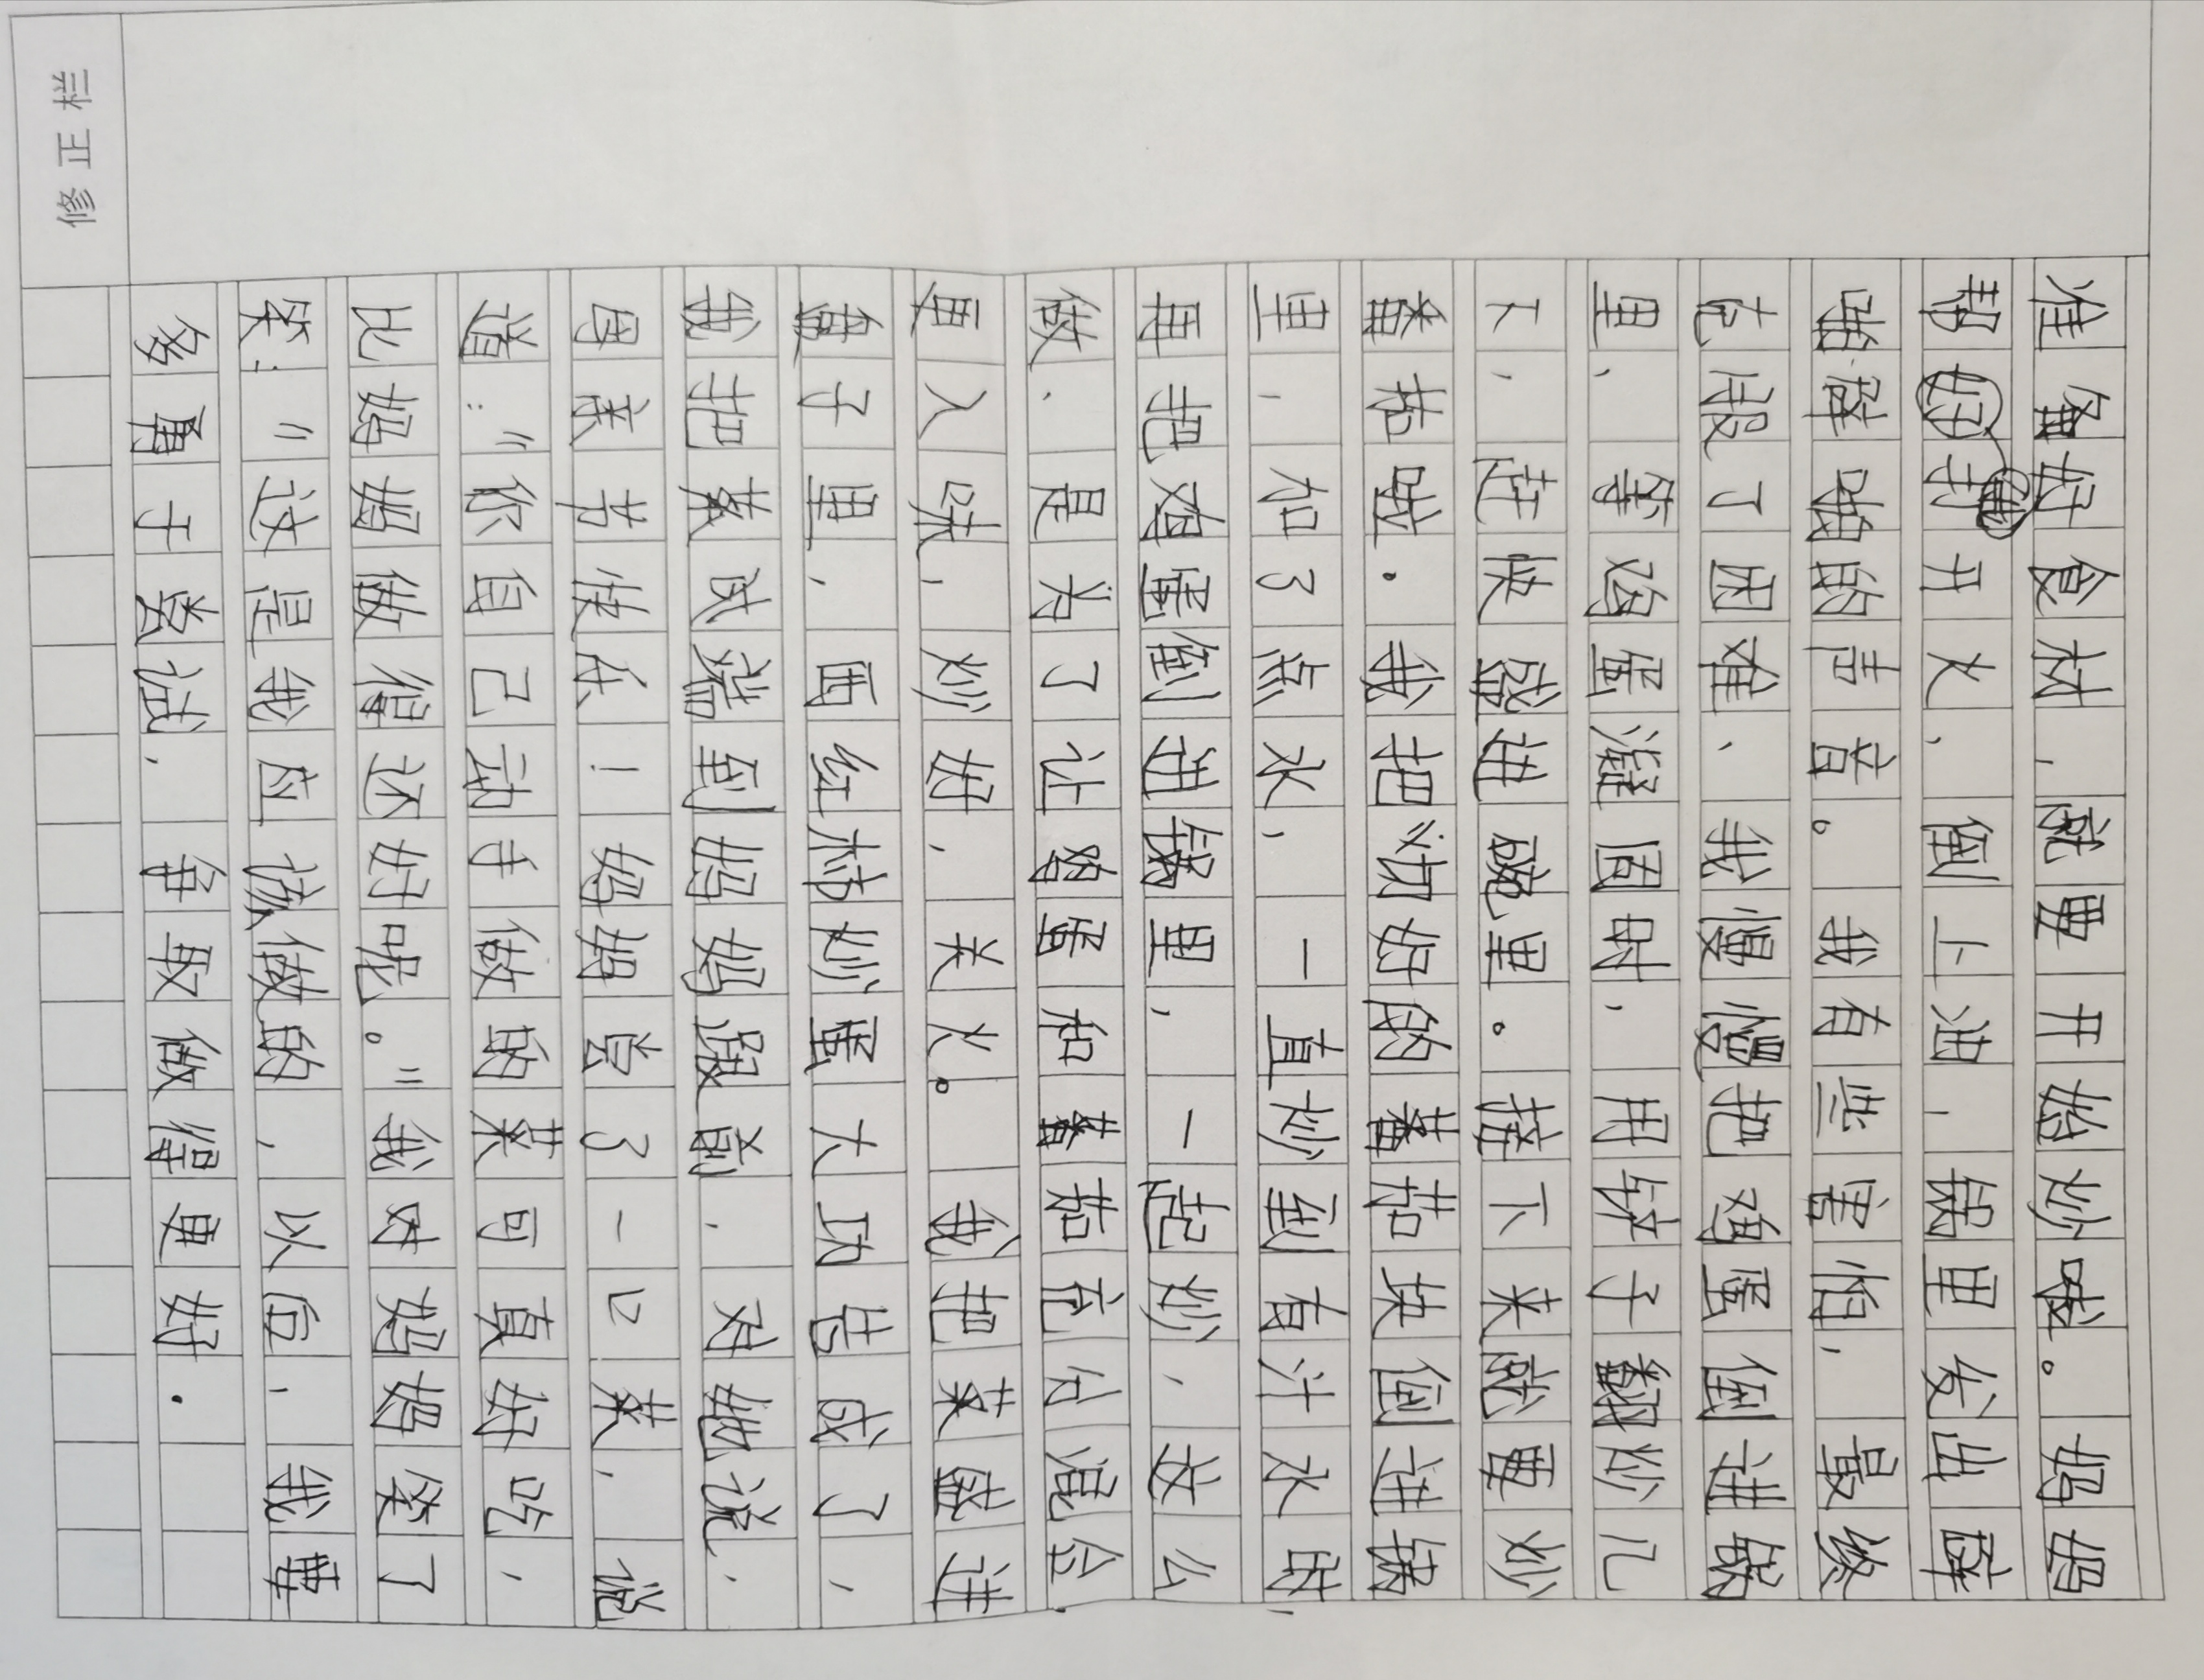 修正栏
准备好食材，就要开始炒啦。妈妈
帮好我打开火，倒上油，锅里发出噼
啪噼啪的声音。我有些害怕，最终
克服了困难，我慢慢把鸡蛋倒进锅
里，等鸡蛋凝固时，用铲子翻炒几
下，赶快盛进碗里。接下来就要炒
番茄啦。我把切好的番茄块倒进锅
里，加了点水，一直炒到有汁水时，
再把鸡蛋倒进锅里，一起炒，这么
做，是为了让鸡蛋和番茄充分混合，
更入味，炒好，关火。我把菜盛进
盘子里，西红柿炒蛋大功告成了，
我把菜式端到妈妈跟前，对她说，
母亲节快乐！妈妈尝了一口菜，说
道：“你自己动手做的菜可真好吃，
比妈妈做得还好呢。”我对妈妈笑了
笑：“这是我应该做的，以后，我要
多勇于尝试，争取做得更好．